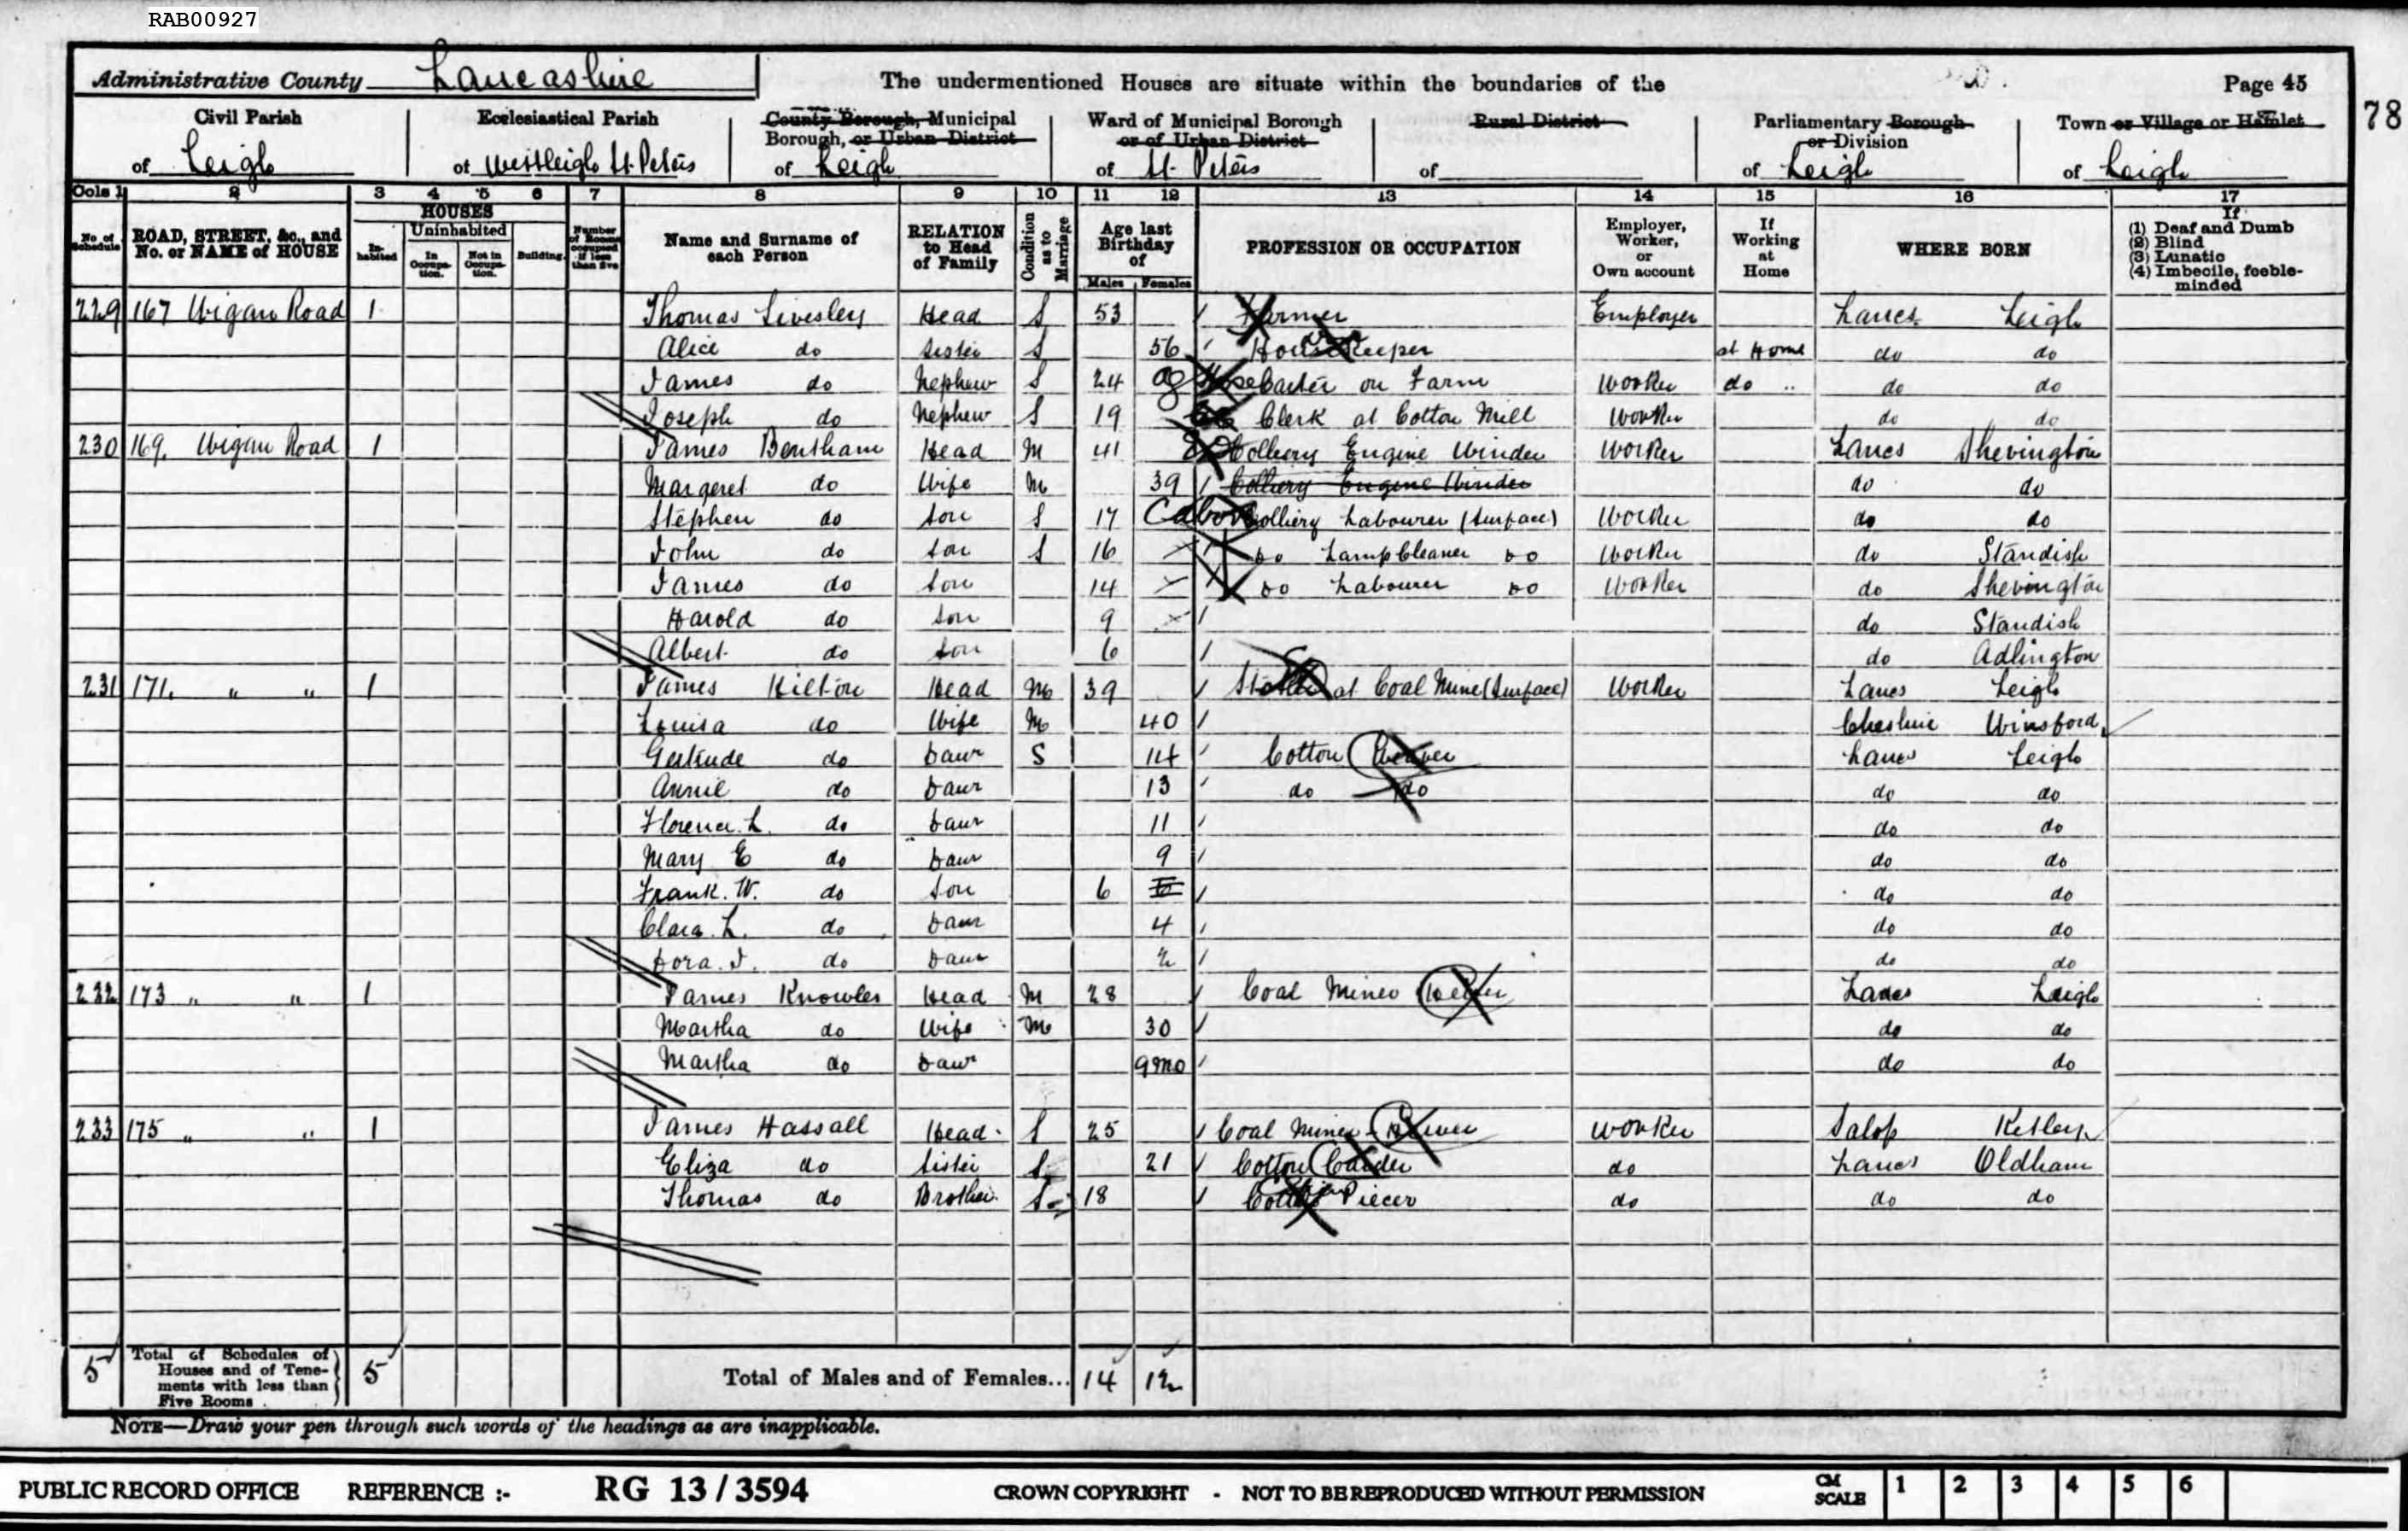 RAB00927
Administrative County Lancashire The undermentioned Houses are situate within the boundaries of the Page 45
78
Civil Parish of Leigh
Ecclesiastical Parish of Westleigh St. Peters
County Borough, Municipal Borough, or Urban District of Leigh
Ward of Municipal Borough or of Urban District of St. Peters
Rural District of
Parliamentary Borough or Division of Leigh
Town or Village or Hamlet of Leigh
Cols 1 2 3 4 5 6 7 8 9 10 11 12 13 14 15 16 17
No. of Schedule
ROAD, STREET, &c., and No. or NAME of HOUSE
HOUSES
Inhabited
Uninhabited
In Occupation.
Not in Occupation.
Building
Number of Rooms occupied if less than five
Name and Surname of each Person
RELATION to Head of Family
Condition as to Marriage
Age last Birthday of
Males Females
PROFESSION OR OCCUPATION
Employer, Worker, or Own account
If Working at Home
WHERE BORN
If
(1) Deaf and Dumb
(2) Blind
(3) Lunatic
(4) Imbecile, feeble-minded
229 167 Wigan Road 1 Thomas Livesley Head S 53 Farmer Employer Lancs Leigh
Alice do Sister S 56 Housekeeper at Home do do
James do Nephew S 24 ag on Farm Worker do " do do
Joseph do Nephew S 19 Clerk at Cotton Mill Worker do do
230 169. Wigan Road 1 James Bentham Head M 41 Colliery Engine Winder Worker Lancs Shevington
Margeret do Wife M 39 Colliery Engine Winder do do
Stephen do Son S 17 Colliery Labourer (Surface) Worker do do
John do Son S 16 Do Lamp Cleaner Do Worker do Standish
James do Son 14 Do Labourer Do Worker do Shevington
Harold do Son 9 do Standish
Albert do Son 6 do Adlington
231 171. " " 1 James Hilton Head M 39 Stoker at Coal Mine (Surface) Worker Lancs Leigh
Louisa do Wife M 40 Cheshire Winsford
Gertrude do Daur S 14 Cotton Weaver Lancs Leigh
Annie do Daur 13 do do do do
Florence. L. do Daur 11 do do
Mary E do Daur 9 do do
Frank. W. do Son 6 do do
Clara L. do Daur 4 do do
Dora. I. do Daur 2 do do
232 173 " " 1 James Knowles Head M 28 Coal Miner Hewer Lancs Leigh
Martha do Wife M 30 do do
Martha do Daur 9mo do do
233 175 " " 1 James Hassall Head S 25 Coal Miner Hewer Worker Salop Ketley
Eliza do Sister S 21 Cotton Carder do Lancs Oldham
Thomas do Brother S 18 Cotton Piecer do do do
5 Total of Schedules of Houses and of Tenements with less than Five Rooms 5 Total of Males and of Females... 14 12
NOTE—Draw your pen through such words of the headings as are inapplicable.
PUBLIC RECORD OFFICE REFERENCE :- RG 13 / 3594 CROWN COPYRIGHT - NOT TO BE REPRODUCED WITHOUT PERMISSION CM SCALE 1 2 3 4 5 6